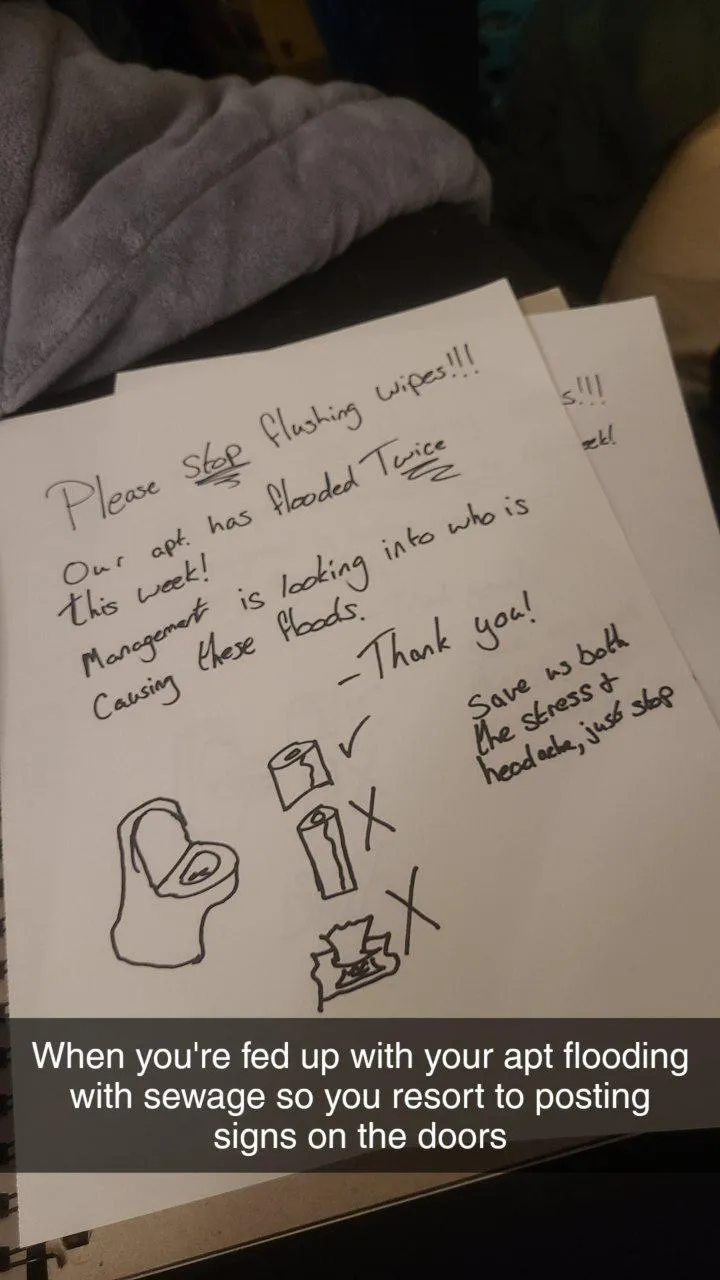 Please stop flushing wipes!!!
Our apt. has flooded Twice
this week!
Management is looking into who is
Causing these floods.
- Thank you!
Save us both
the stress &
headache, just stop
s!!!
eek!
When you're fed up with your apt flooding
with sewage so you resort to posting
signs on the doors